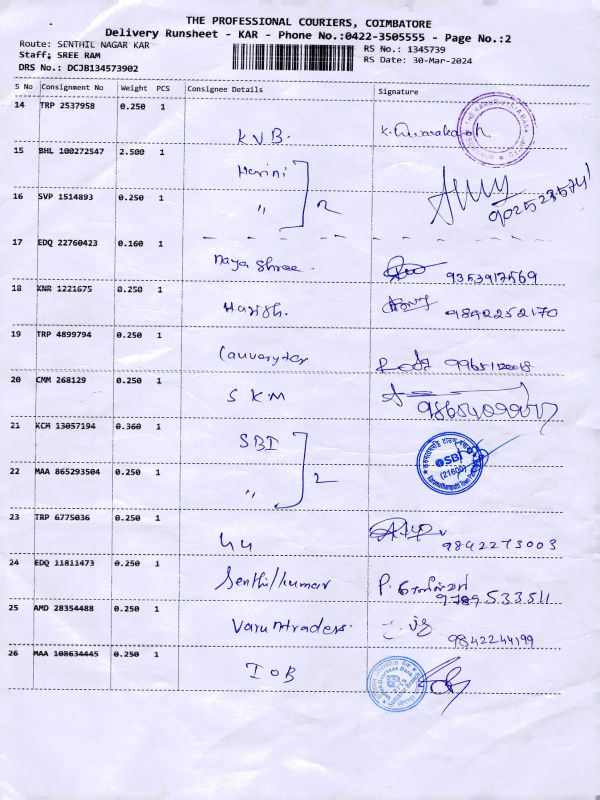 THE PROFESSIONAL COURIERS, COIMBATORE
Delivery Runsheet - KAR - Phone No.:0422-3505555 - Page No.:2
Route: SENTHIL NAGAR KAR
RS No.: 1345739
Staff: SREE RAM
RS Date: 30-Mar-2024
DRS No.: DCJB134573902
S No Consignment No Weight PCS Consignee Details Signature
14 TRP 2537958 0.250 1
KVB.
15 BHL 100272547 2.500 1
Harini
16 SVP 1514893 0.250 1
" 2
17 EDQ 22760423 0.160 1
Maya Shree. 9353917569
18 KNR 1221675 0.250 1
Harish. 9842252170
19 TRP 4899794 0.250 1
20 CMM 268129 0.250 1
SKM
21 KCM 13057194 0.360 1
SBI
SBI
(21600)
22 MAA 865293504 0.250 1
" 2
23 TRP 6775036 0.250 1
9842273003
24 EDQ 11811473 0.250 1
Senthilkumar P.
9789533511
25 AMD 28354488 0.250 1
Varuntraders.
9842244199
26 MAA 108634445 0.250 1
IOB